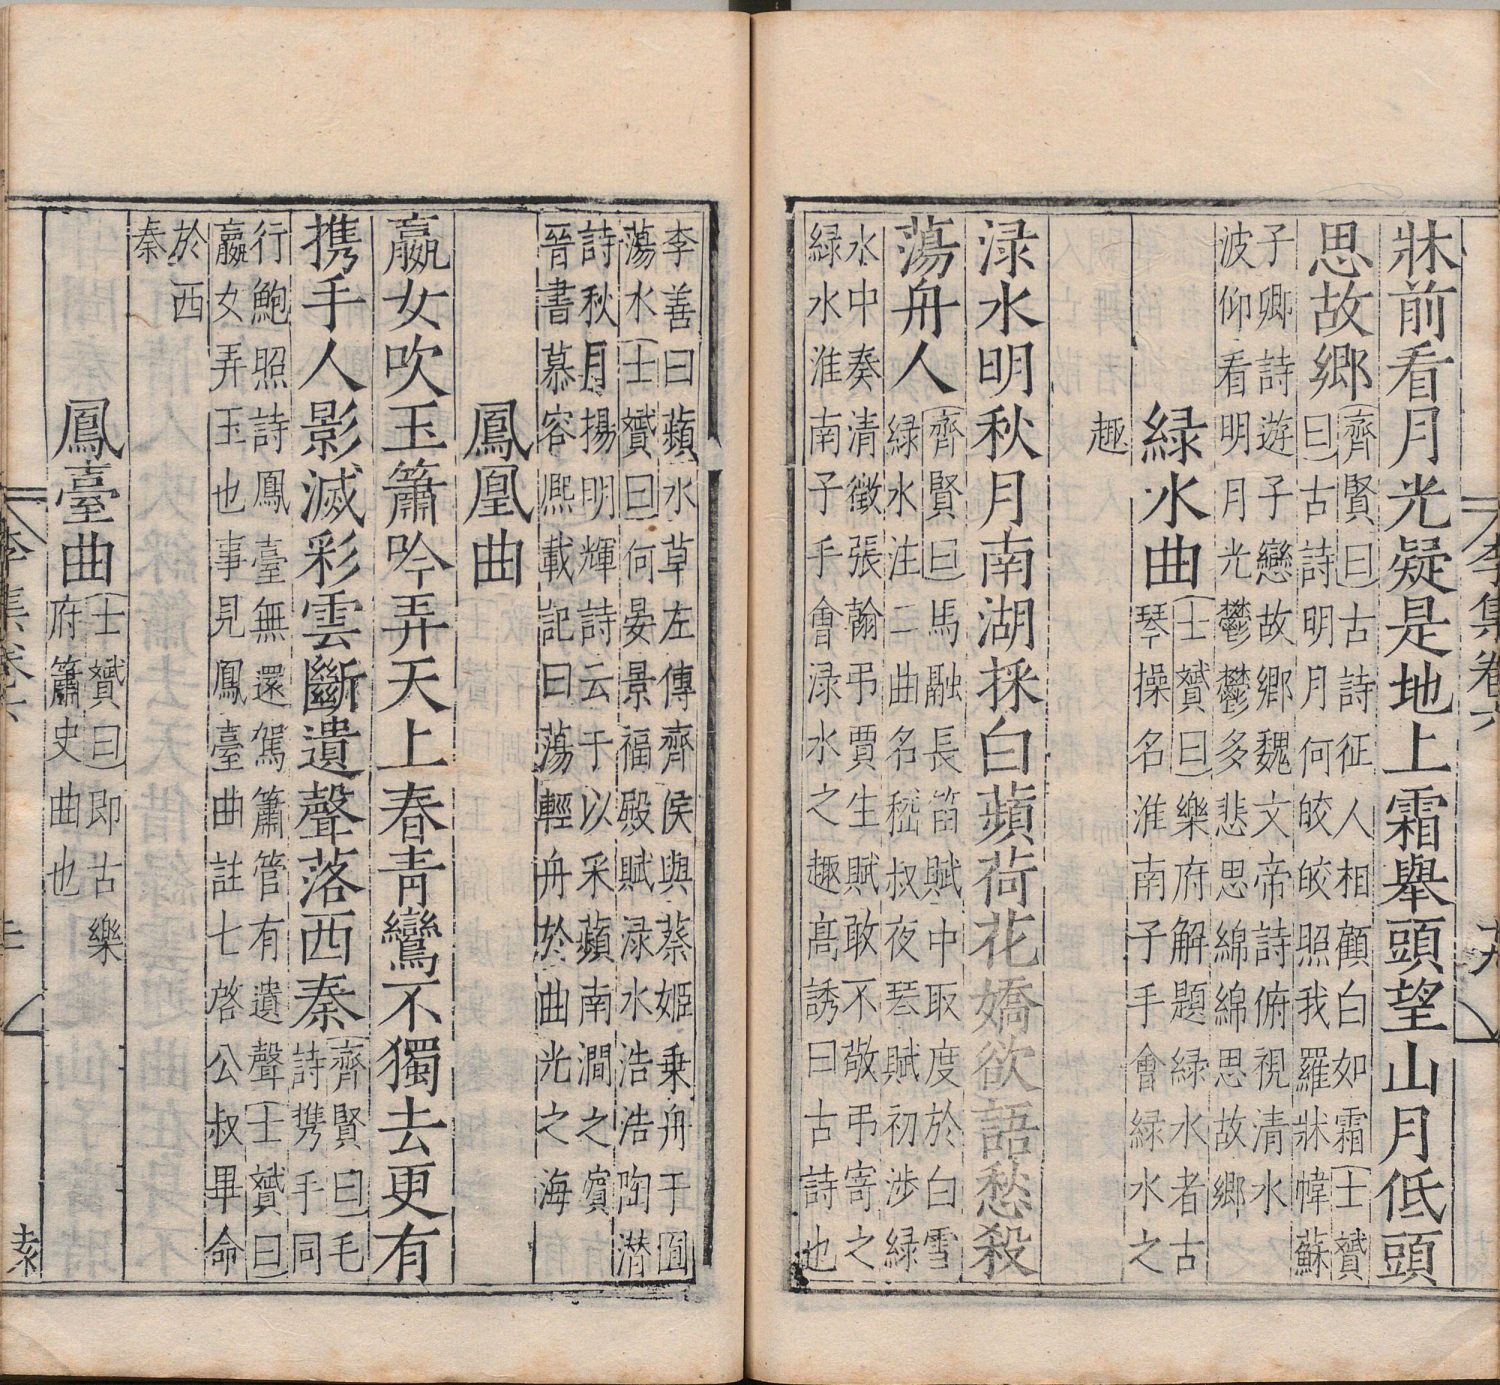 牀前看月光疑是地上霜舉頭望山月低頭
思故鄉
齊賢曰古詩征人相顧白如霜士贇
曰古詩明月何皎皎照我羅牀幃蘇
子卿詩遊子戀故鄉魏文帝詩俯視清水
波仰看明月光鬱鬱多悲思綿綿思故鄉
綠水曲
士贇曰樂府解題綠水者古
琴操名淮南子手會綠水之
趣
淥水明秋月南湖採白蘋荷花嬌欲語愁殺
蕩舟人
齊賢曰馬融長笛賦中取度於白雪
綠水注二曲名嵇叔夜琴賦初涉綠
水中奏清徵張翰弔賈生賦敢不敬弔寄之
綠水淮南子手會淥水之趣高誘曰古詩也
李善曰蘋水草左傳齊侯與蔡姬乗舟于圓
蕩水士贇曰何晏景福殿賦淥水浩浩陶潜
詩秋月揚明輝詩云于以采蘋南澗之濱
晉書慕容熈載記曰蕩輕舟於曲光之海
鳳凰曲
嬴女吹玉簫吟弄天上春青鸞不獨去更有
携手人影滅彩雲斷遺聲落西秦
齊賢曰毛
詩携手同
行鮑照詩鳳臺無還駕簫管有遺聲士贇曰
嬴女弄玉也事見鳳臺曲註七啓公叔畢命
於西
秦
鳳臺曲
士贇曰即古樂
府簫史曲也
李集卷六
十九